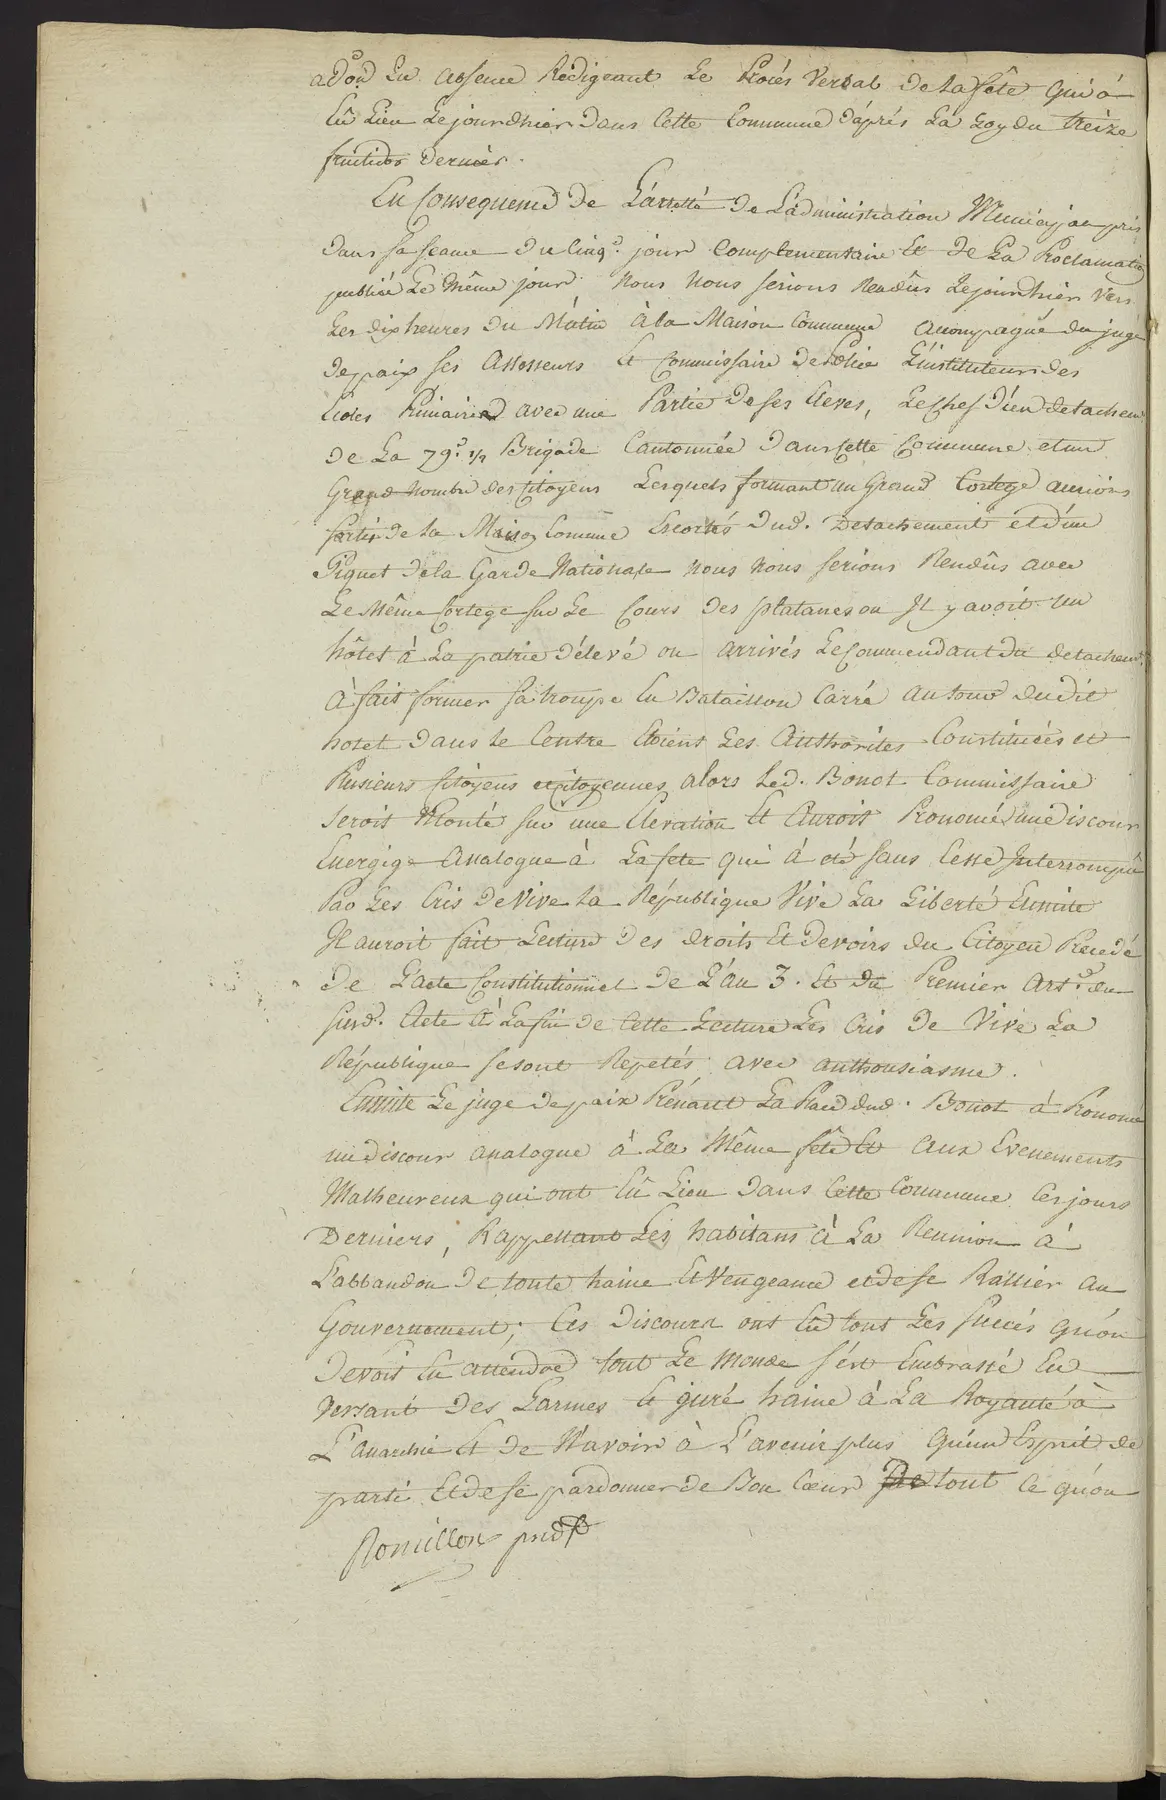 adon En absence Rédigeant Le Procés Verbal de la fête Qui a
Eû Lieu Le jour dhier dans Cette Commune d'áprés La Loy du treize
fructidor dernier.
En Consequence de L'árretté de L'administration Municipale pris
dans sa seance du Cinq.e jour Complementaire Et de La Proclamation
publiée Le même jour Nous Nous serions Rendûs Le jour d'hier Vers
Les dix heures du Matin à la Maison Commune accompagné du juge
de paix ses Assesseurs Et Commissaire de Police L'instituteur des
Ecoles Primaires avec une Partie de ses Eleves, Le Chef d'un detachem.t
de La 79.e 1/2 Brigade Cantonnée dans Cette Commune et un
Grand Nombre des Citoyens Lesquels formant un Grand Cortege aurions
sortis de la Maison Commune Escortés dud. Detachement et d'un
Piquet de la Garde Nationale nous nous serions Rendûs avec
Le même Cortege sur Le Cours des platanes ou Il y avoit un
hôtel à La patrie d'élevé ou arrivés Le Commendant du detachem.t
à fait former sa troupe En Bataillon Carré au tour du dit
hotel dans le Centre Etoient Les Authorites Constituées et
Plusieurs Citoyens et Citoyennes, alors Led. Bonot Commissaire
seroit Monté sur une Elevation Et Auroit Prononcé un discour
Energiq.e Analogue à La fete qui à eté sans Cesse Interrompû
Par Les Cris de Vive La République Vive La Liberté Ensuite
Il auroit fait Lecture des droits Et Devoirs du Citoyen Precedé
de L'acte Constitutionnel de L'an 3. Et du Premier Art.e du
susd. Acte à La fin de Cette Lecture Les Cris de Vive La
République se sont Repetés avec anthousiasme.
Ensuite Le juge de paix Prénant La Place dud. Bonot à Prononcé
un discour analogue à La Même fête Et aux Evenements
Malheureux qui ont Eû Lieu dans Cette Commune Ces jours
Derniers, Rappellant Les habitans à La Reunion à
L'abbandon de toute haine Et Vengeance et de se Rallier au
Gouvernement; Ces Discours ont Eû tous Les succés Qu'on
devoit En attendre tout Le monde s'ést Embrassé En
Versant des Larmes Et juré haine à La Royauté à
L'anarchie Et de N'avoir à L'avenir plus Qu'un Esprit de
parti Et de se pardonner de Bon Cœur tout Ce qu'on
Romillon prést